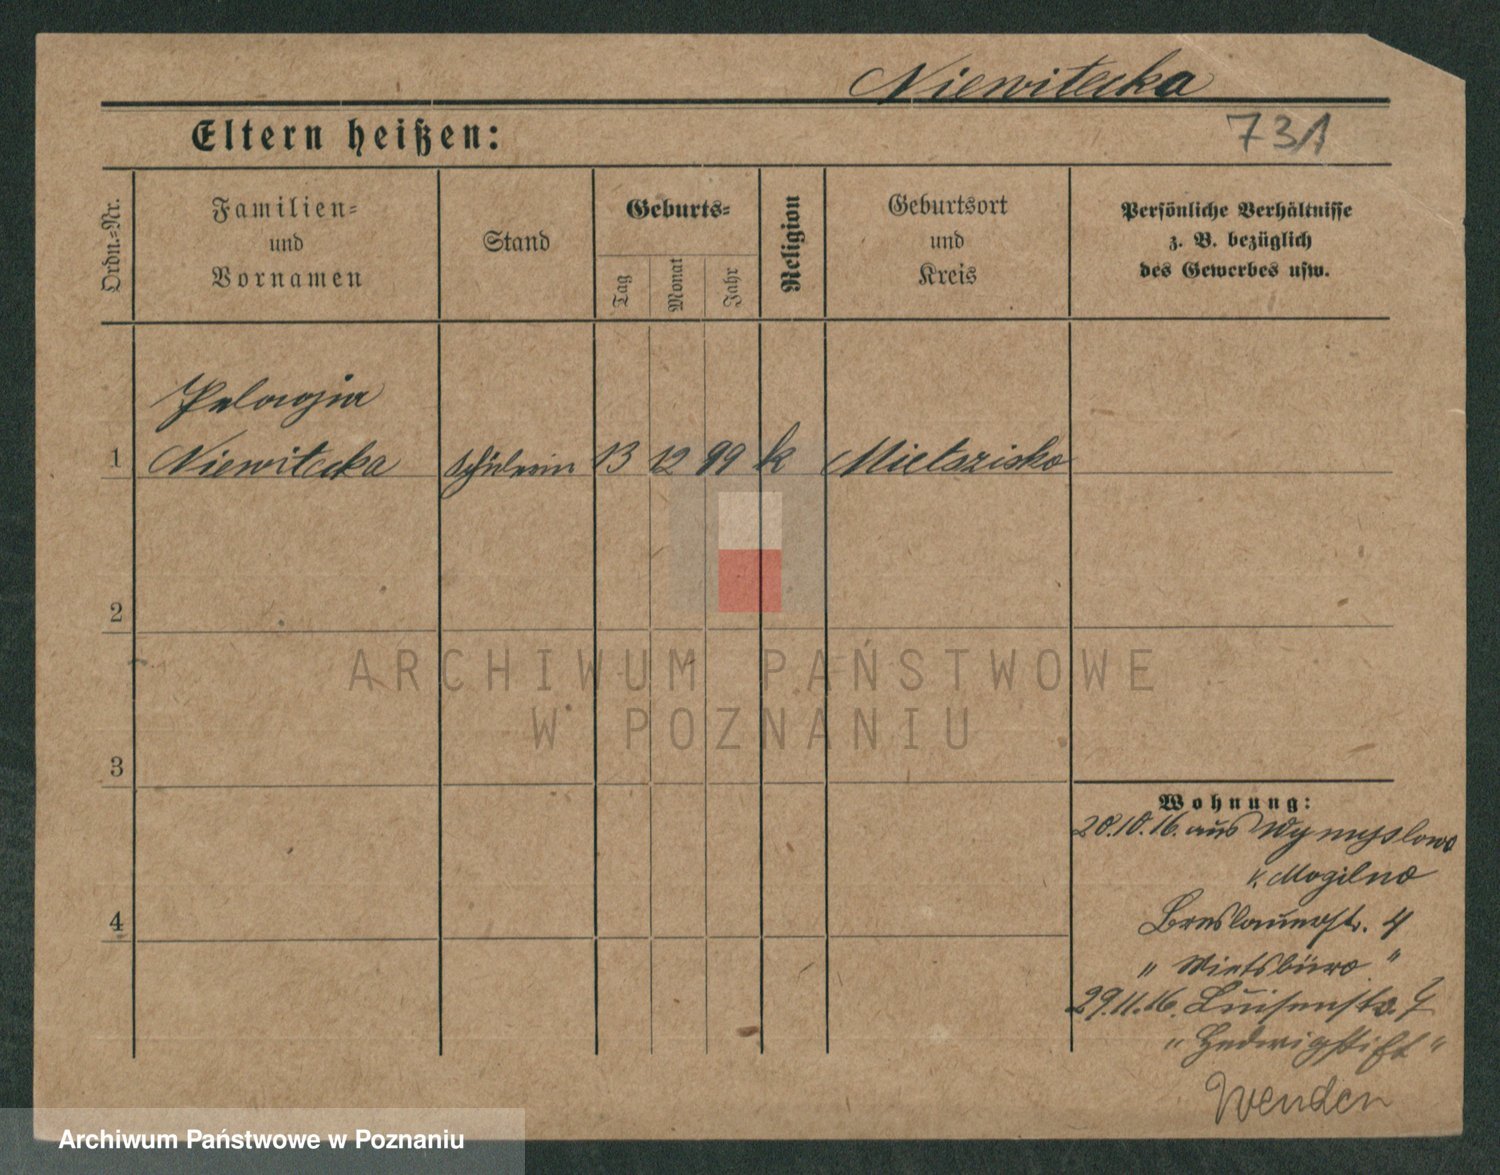 Niewitecka
Eltern heißen:
731
Ordn.=Nr.
Familien=
und
Vornamen
Stand
Geburts=
Tag
Monat
Jahr
Religion
Geburtsort
und
Kreis
Persönliche Verhältnisse
z. B. bezüglich
des Gewerbes usw.
Pelagia
1 Niewitecka Schülerin 13 12 99 k Mietszisko
2
ARCHIWUM PAŃSTWOWE
W POZNANIU
3
Wohnung:
20.10.16. aus Wymyslowo
K. Mogilno
4
Breslauerstr. 4
" Mietsbüro "
29.11.16. Luisenstr.
" Hedwigstift "
Wenden
Archiwum Państwowe w Poznaniu